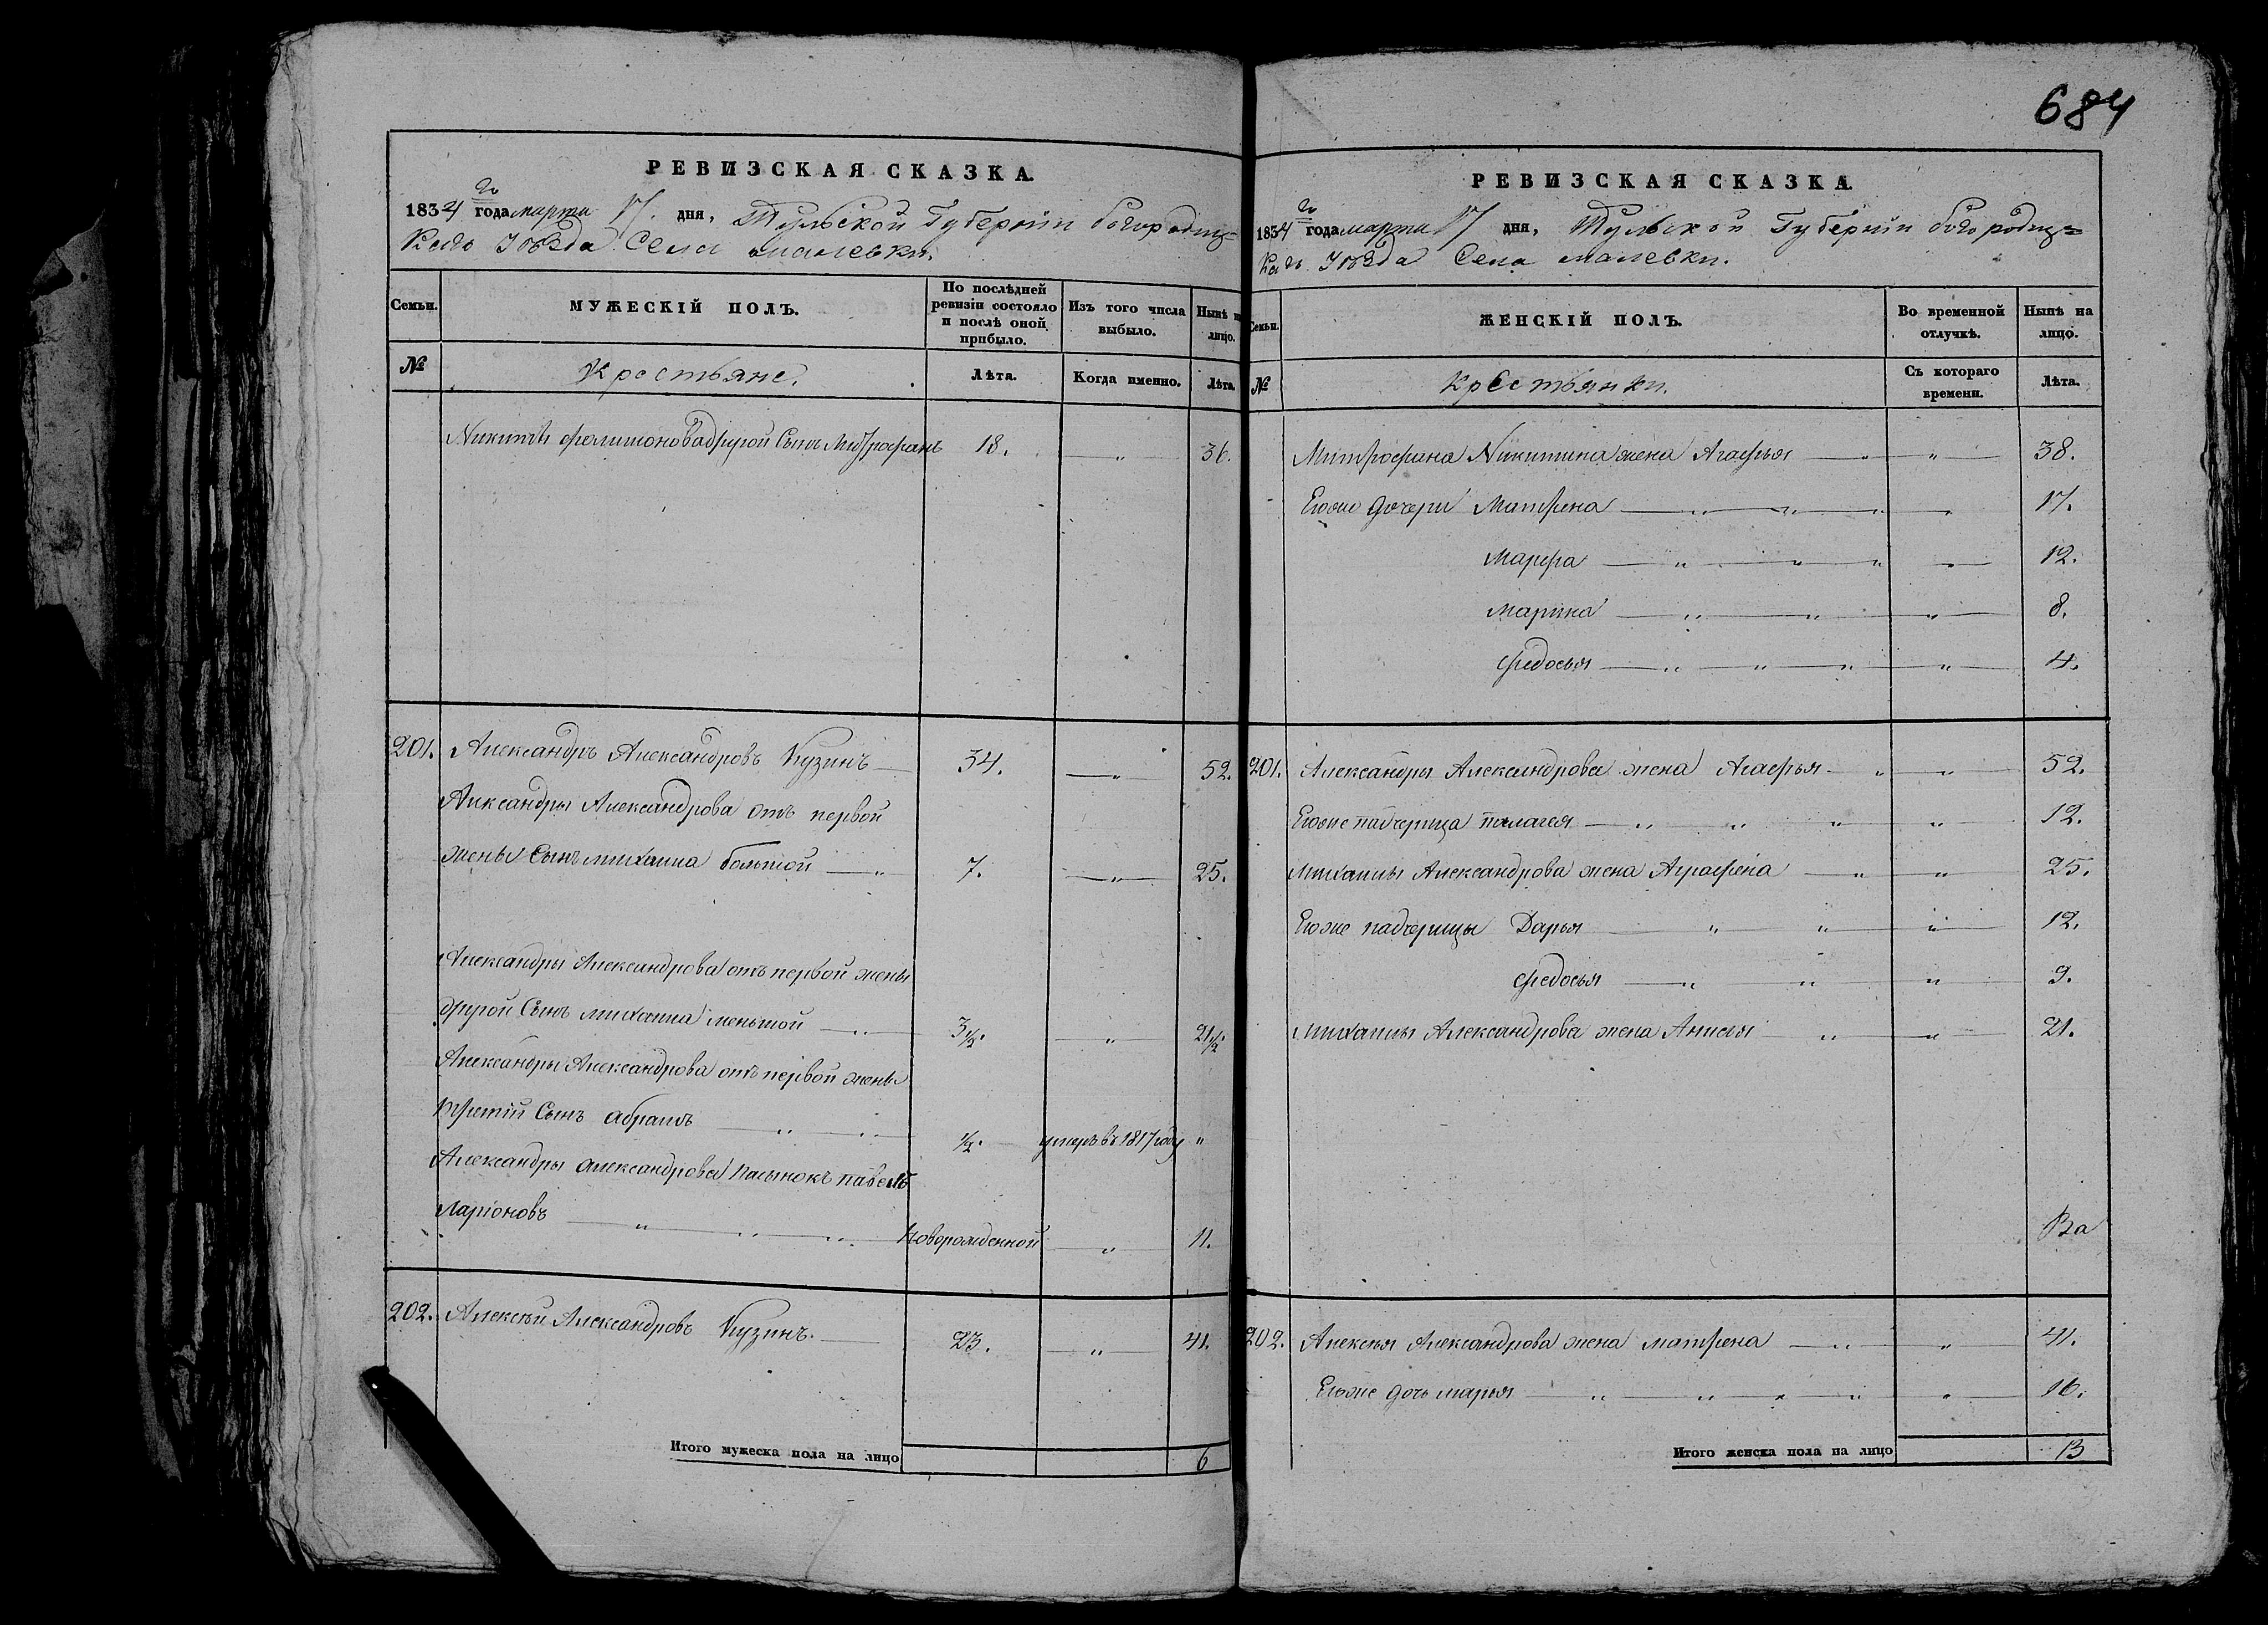 684
РЕВИЗСКАЯ СКАЗКА.
1834 го года марта 17. дня, Тульской Губернiи богородиц=
каго Уѣзда Села малевки.
Семьи.
МУЖЕСКІЙ ПОЛЪ.
По послѣдней ревизіи состояло и послѣ оной прибыло.
Изъ того числа выбыло.
Нынѣ на лицо.
№
Крестьяне.
Лѣта.
Когда именно.
Лѣта.
Никиты филимонова другой Сынъ Митрофанъ 18. — " — 36.
201. Александръ Александровъ Кузинъ — 34. — " — 52.
Александры Александрова отъ первой
жены Сынъ михаила большой — " 7. — " — 25.
Александры Александрова отъ первой жены
другой Сынъ михаила меньшой — " 3½. — " — 21½.
Александры Александрова отъ первой жены
третiй Сынъ абрамъ — " — " ½. умеръ въ 1817 году "
Александры александрова пасынокъ павелъ
Ларiоновъ — " — " — " Новорожденной — " — 11.
202. Алексѣй Александровъ Кузинъ. — 23. — " — 41.
Итого мужеска пола на лицо 6
РЕВИЗСКАЯ СКАЗКА.
1834 го года марта 17 дня, Тульской Губернiи богородиц=
каго Уѣзда Села малевки.
Семьи.
ЖЕНСКІЙ ПОЛЪ.
Во временной отлучкѣ.
Нынѣ на лицо.
№
Крестьянки.
Съ котораго времени.
Лѣта.
Митрофана Никитина жена Агафья — " — " — 38.
Егоже дочери Матрена — " — " — " — " — 17.
Марфа — " — " — " — " — 12.
Марина — " — " — " — 8.
федосья — " — " — " — " — 4.
201. Александры Александрова жена Агафья — " — " — 52.
Егоже падчерица палагея — " — " — " — " — 12.
Михаилы Александрова жена Аграфена — " — " — 25.
Егоже падчерицы Дарья — " — " — " — 12.
федосья — " — " — " — 9.
михаилы Александрова жена Анисья " — " — 21.
Ва
202. Алексѣя Александрова жена матрена — " — " — 41.
Егоже дочь марья — " — " — " — " — " — 16.
Итого женска пола на лицо 13